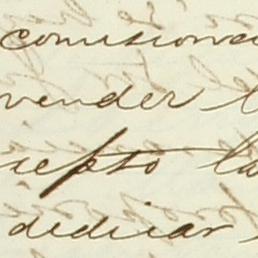 comisiona
vender l
cepto la
dedicar